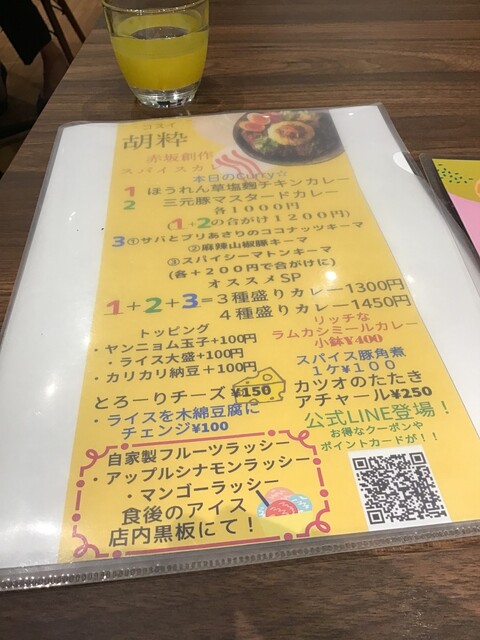 コスイ
胡粋
赤坂創作
スパイスカレー
本日のCurry☆
1 ほうれん草塩麹チキンカレー
2 三元豚マスタードカレー
各1000円
(1+2の合がけ1200円)
3①サバとブリあさりのココナッツキーマ
②麻辣山椒豚キーマ
③スパイシーマトンキーマ
(各+200円で合がけに)
オススメSP
1+2+3=3種盛りカレー1300円
4種盛りカレー1450円
トッピング
・ヤンニョム玉子+100円
・ライス大盛+100円
・カリカリ納豆+100円
とろーりチーズ¥150
・ライスを木綿豆腐に
チェンジ¥100
リッチな
ラムカシミールカレー
小鉢¥400
スパイス豚角煮
1ケ¥100
カツオのたたき
アチャール¥250
公式LINE登場!
お得なクーポンや
ポイントカードが!!
自家製フルーツラッシー
・アップルシナモンラッシー
・マンゴーラッシー
食後のアイス
店内黒板にて!